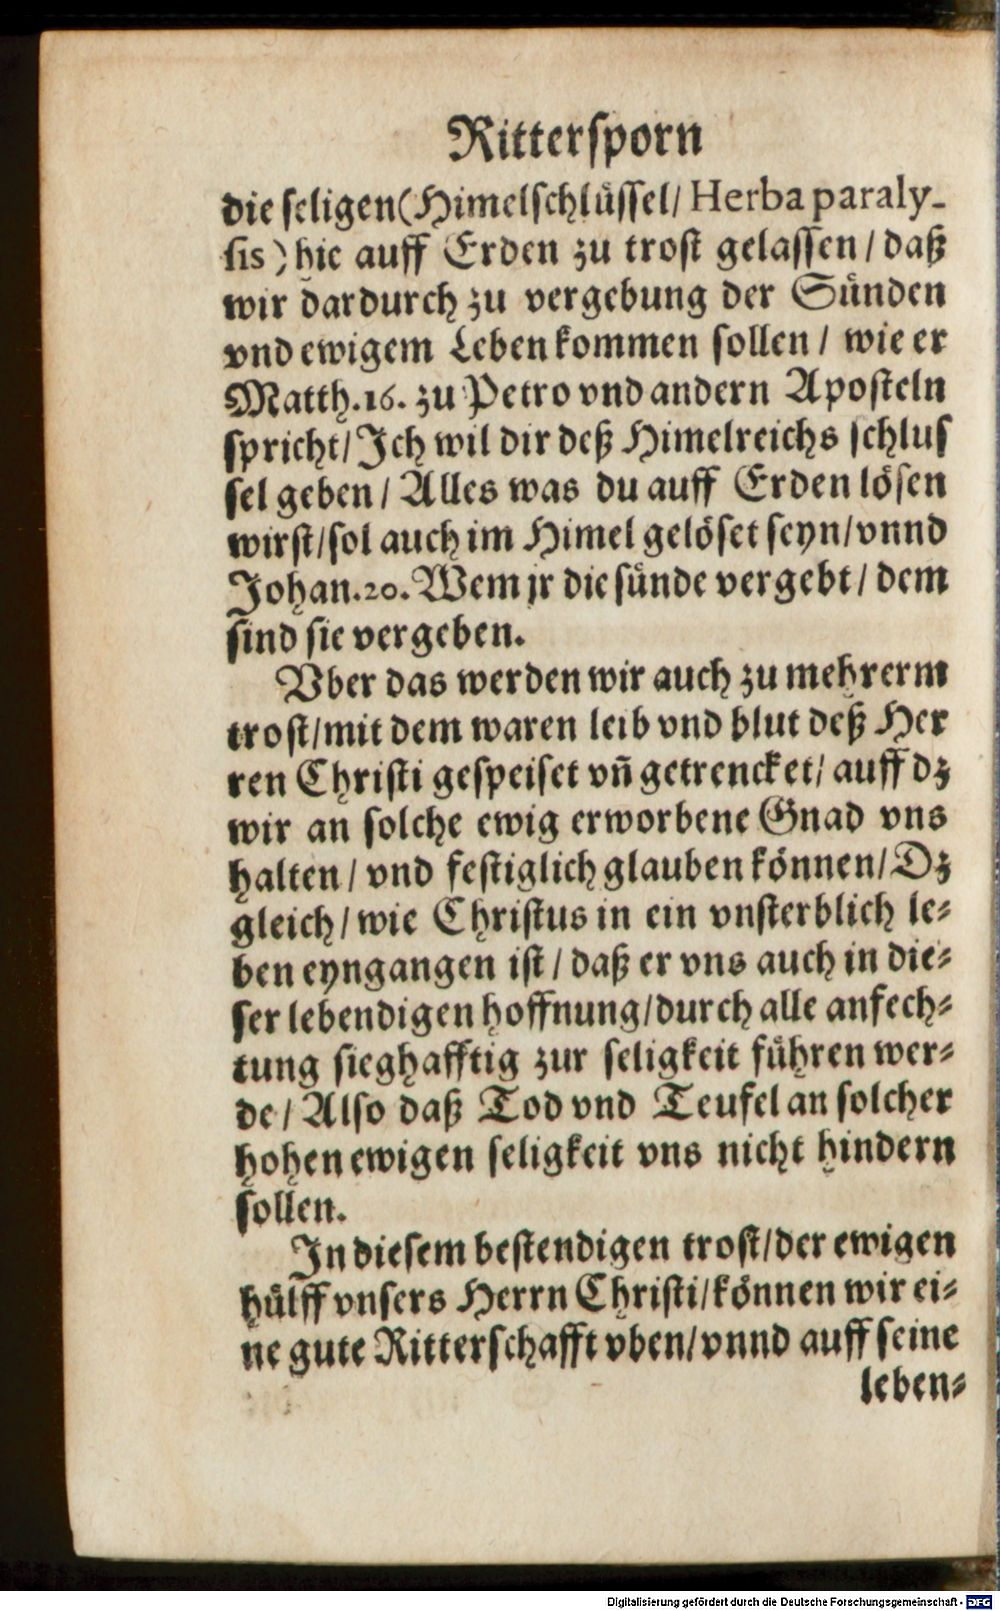 Ritterſporn
die ſeligen (Himelſchlüſſel/ Herba paraly-
ſis) hie auff Erden zu troſt gelaſſen / daß
wir dardurch zu vergebung der Sünden
vnd ewigem Leben kommen ſollen / wie er
Matth.16. zu Petro vnd andern Apoſteln
ſpricht/ Ich wil dir deß Himelreichs ſchluſ
ſel geben / Alles was du auff Erden löſen
wirſt/ ſol auch im Himel gelöſet ſeyn/ vnnd
Johan.20. Wem jr die ſünde vergebt / dem
ſind ſie vergeben.
Vber das werden wir auch zu mehrerm
troſt/ mit dem waren leib vnd blut deß Her
ren Chriſti geſpeiſet vñ getrencket/ auff dz
wir an ſolche ewig erworbene Gnad vns
halten / vnd feſtiglich glauben können/ Dz
gleich / wie Chriſtus in ein vnſterblich le-
ben eyngangen iſt / daß er vns auch in die-
ſer lebendigen hoffnung/ durch alle anfech-
tung ſieghafftig zur ſeligkeit führen wer-
de / Alſo daß Tod vnd Teufel an ſolcher
hohen ewigen ſeligkeit vns nicht hindern
ſollen.
In dieſem beſtendigen troſt/ der ewigen
hülff vnſers Herrn Chriſti/ können wir ei-
ne gute Ritterſchafft vben/ vnnd auff ſeine
leben-
Digitalisierung gefördert durch die Deutsche Forschungsgemeinschaft - DFG